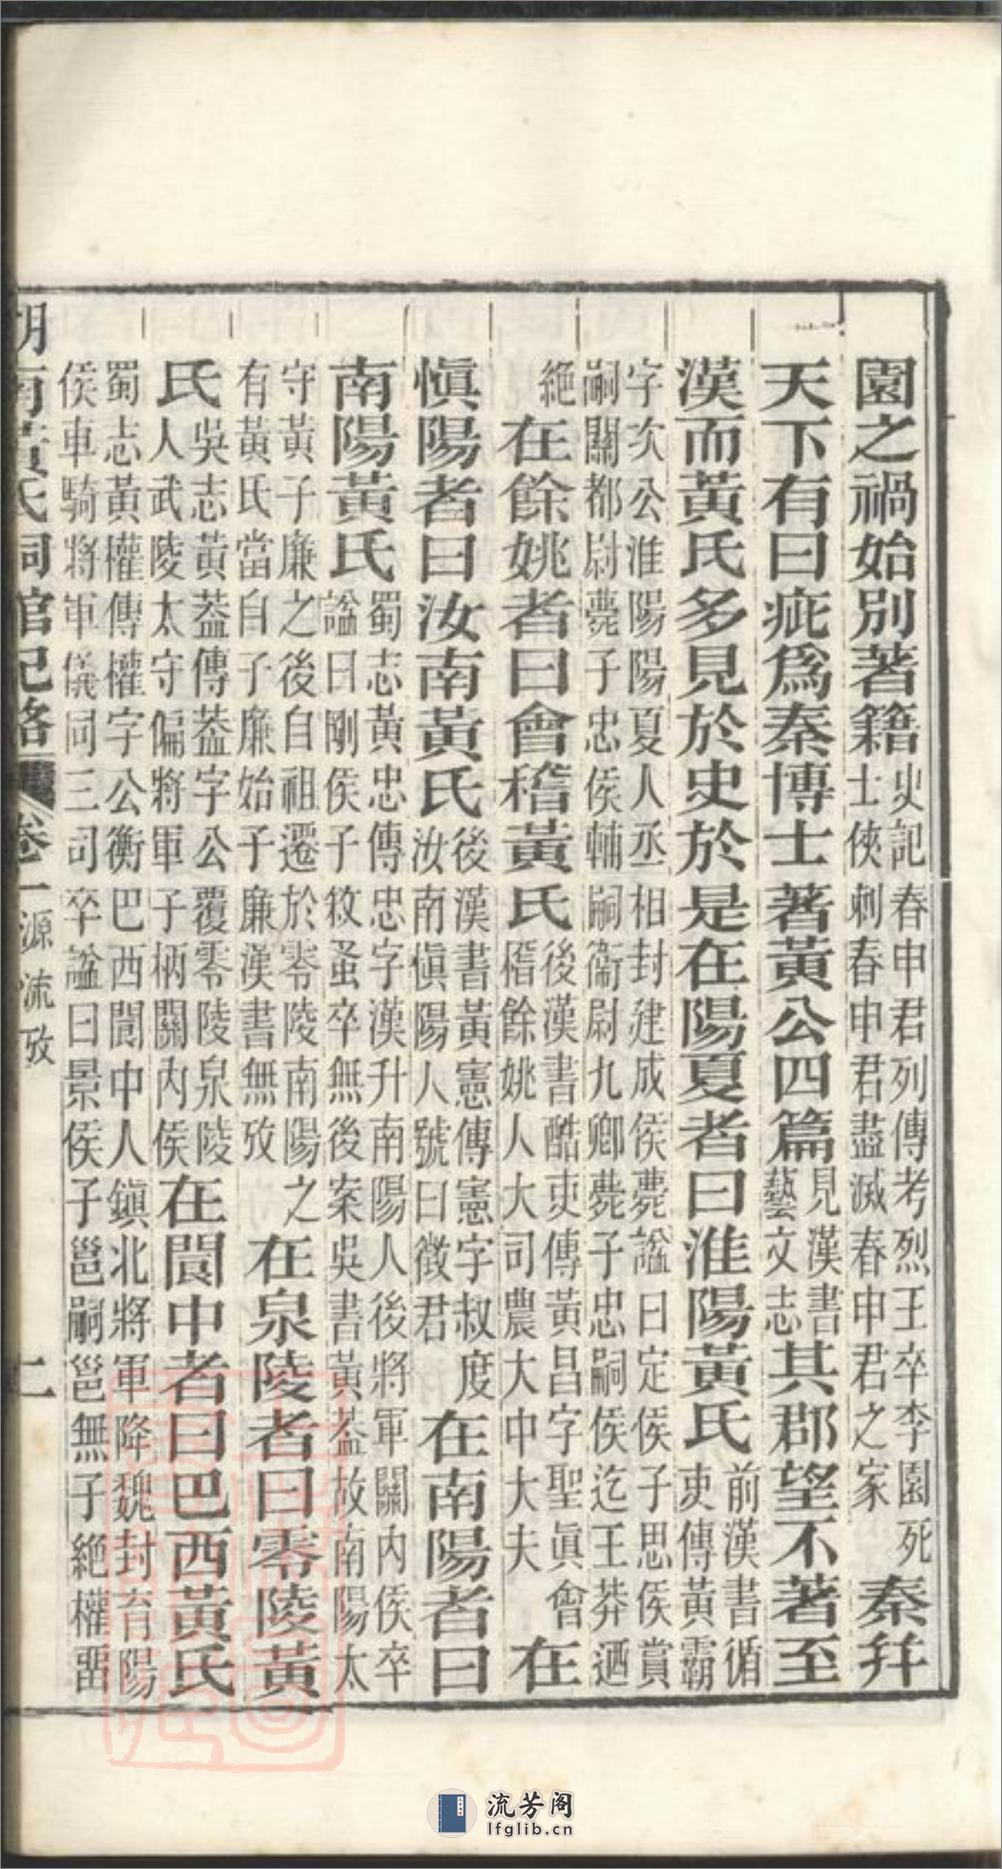 園之禍始別著籍史記春申君列傳考烈王卒李園死士俠刺春申君盡滅春申君之家秦并
天下有曰疵爲秦博士著黃公四篇見漢書藝文志其郡望不著至
漢而黃氏多見於史於是在陽夏者曰淮陽黃氏前漢書循吏傳黃霸
字次公淮陽陽夏人丞相封建成侯薨諡曰定侯子思侯賞嗣關都尉薨子忠侯輔嗣衞尉九卿薨子忠嗣侯迄王莽迺
絕在餘姚者曰會稽黃氏後漢書酷吏傳黃昌字聖眞會稽餘姚人大司農大中大夫在
愼陽者曰汝南黃氏後漢書黃憲傳憲字叔度汝南愼陽人號曰徵君在南陽者曰
南陽黃氏蜀志黃忠傳忠字漢升南陽人後將軍關內侯卒諡曰剛侯子敘蚤卒無後案吳書黃葢故南陽太
守黃子廉之後自祖遷於零陵南陽之有黃氏當自子廉始子廉漢書無攷在泉陵者曰零陵黃
氏吳志黃葢傳葢字公覆零陵泉陵人武陵太守偏將軍子柄關內侯在閬中者曰巴西黃氏
蜀志黃權傳權字公衡巴西閬中人鎭北將軍降魏封育陽侯車騎將軍儀同三司卒諡曰景侯子邕嗣邕無子絕權畱
湖南黃氏祠館記略 卷一 源流攷 二
流芳阁
lfglib.cn